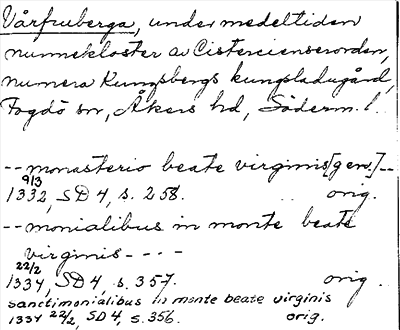 Vårfruberga, under medeltiden
nunnekloster av Cistercienserorden,
numera Kungsbergs kungsladugård,
Fogdö sn, Åkers hd, Söderm. l.
-- monasterio beate virginis [gen.] --
9/3
1332, SD 4, s. 258. orig.
-- monialibus in monte beate
virginis - - - -
22/2
1334, SD 4, s. 357. orig.
sanctimonialibus in monte beate virginis
1334 22/2, SD 4, s. 356. orig.